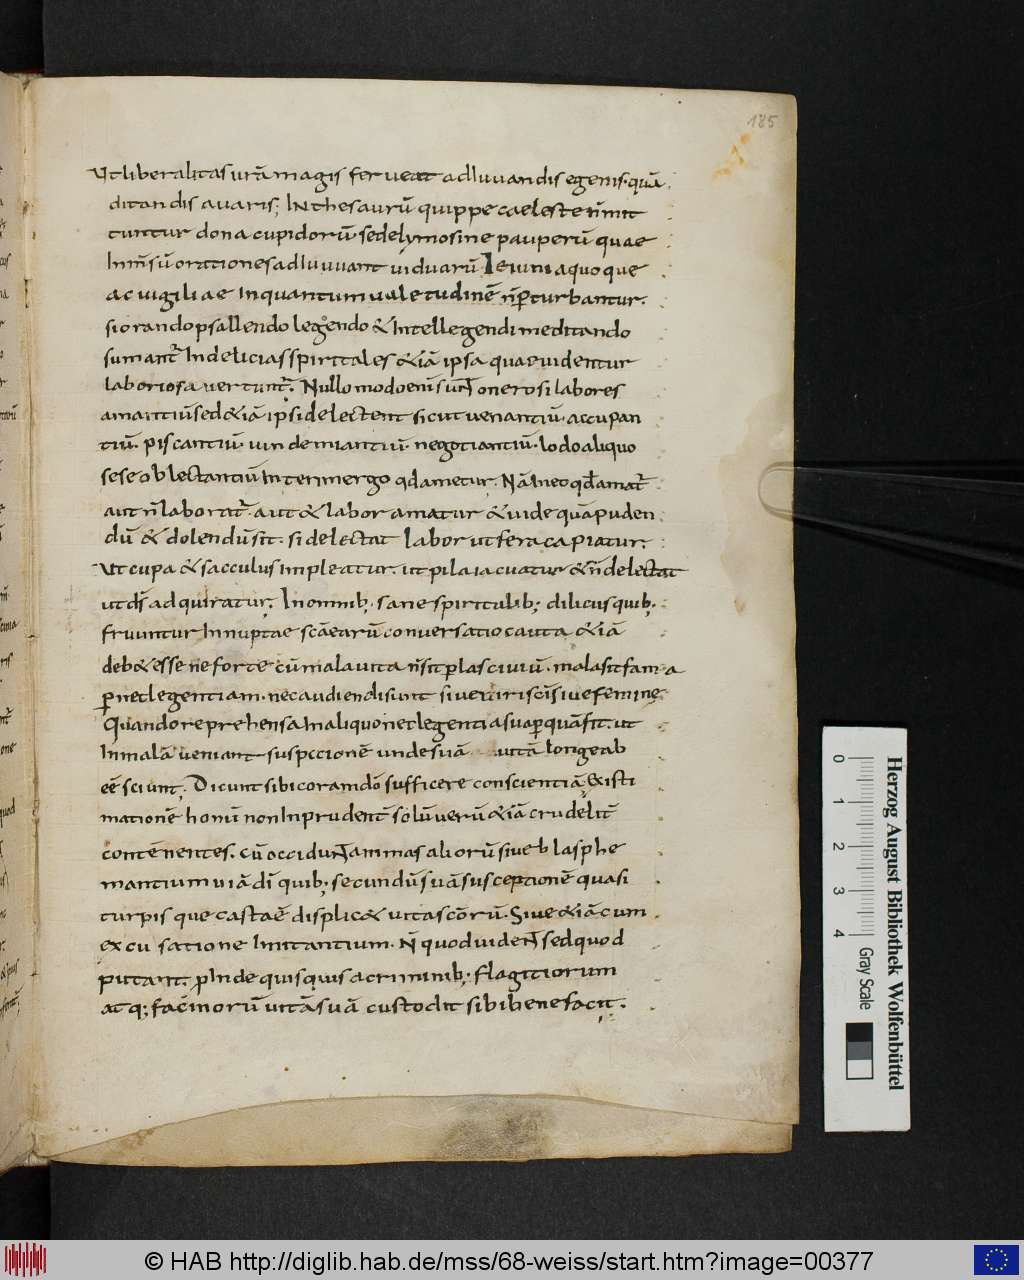 185
Ut liberalitas urā magis ferueat adiuuandis egenis· quā
ditandis auaris; In thesaurū quippe caeleste n̄ mit
tuntur dona cupidorū sed elymosine pauperū quae
Inm̄sū orationes adiuuuant uiduarū Ieiunia quoque
ac uigiliae Inquantum ualetudinē n̄ pturbantur.
si orando psallendo legendo & Intellegendi meditando
sumant̄ In delicias spiritales & iā ipsa quae uidentur
laboriosa uertunt̄. Nullo modo enī sun̄ onerosi labores
amantiū sed & iā ipsi delectent sicut uenantiū· accupan
tiū· piscantiū· uindemiantiū· negotiantiū· lodo aliquo
sese oblectantiū Interim ergo qd ametur. Nā In eo qd amat̄
aut n̄ laborat̄. aut & labor amatur & uide quā puden
dū & dolendū sit. si delectat labor ut fera capiatur.
Ut cupa & sacculus impleatur. ut pila iacuatur & n̄ delectat
ut ds̄ adquiratur. In omnib; sane spiritalib; dilicus quib;
fruuntur Innuptae scāearū conuersatio cauta & iā
deb& esse ne forte cū mala uita n̄ sit p lasciuiū· mala sit fama
p neclegentiam· nec audiendi sunt siue uiri scī siue femine
Quando reprehensa In aliquo neclegentia sua p quā fit· ut
In malā ueniant suspccionē unde suā uitā longe ab
eē sciunt. Dicunt sibi coram dō sufficere conscientiā Existi
mationē honū non Inprudent̄ solū uerū & iā crudelit̄
contēnentes. cū occidun̄ ammas aliorū siue blasphe
mantium uiā dī quib; secundū suā susceptionē quasi
turpis que casta ē displic& uita scōrū· Siue & iā cum
excusatione Imitantium· N̄ quod uiden̄ sed quod
putant. pInde quisquis a criminib; flagitiorum
atq; facinorū uitā suā custodit sibi bene facit.
Herzog August Bibliothek Wolfenbüttel
0 1 2 3 4 Gray Scale
© HAB http://diglib.hab.de/mss/68-weiss/start.htm?image=00377